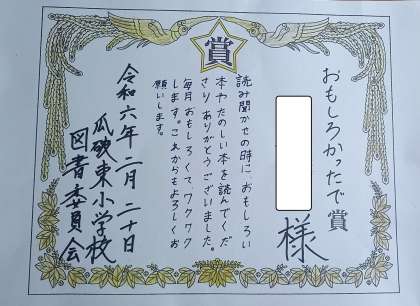 賞
おもしろかったで賞
様
読み聞かせの時に、おもしろい
本やたのしい本を読んでくだ
さりありがとうございました。
毎月おもしろくて、ワクワク
します。これからもよろしくお
願いします。
令和六年二月二十日
瓜破東小学校
図書委員会